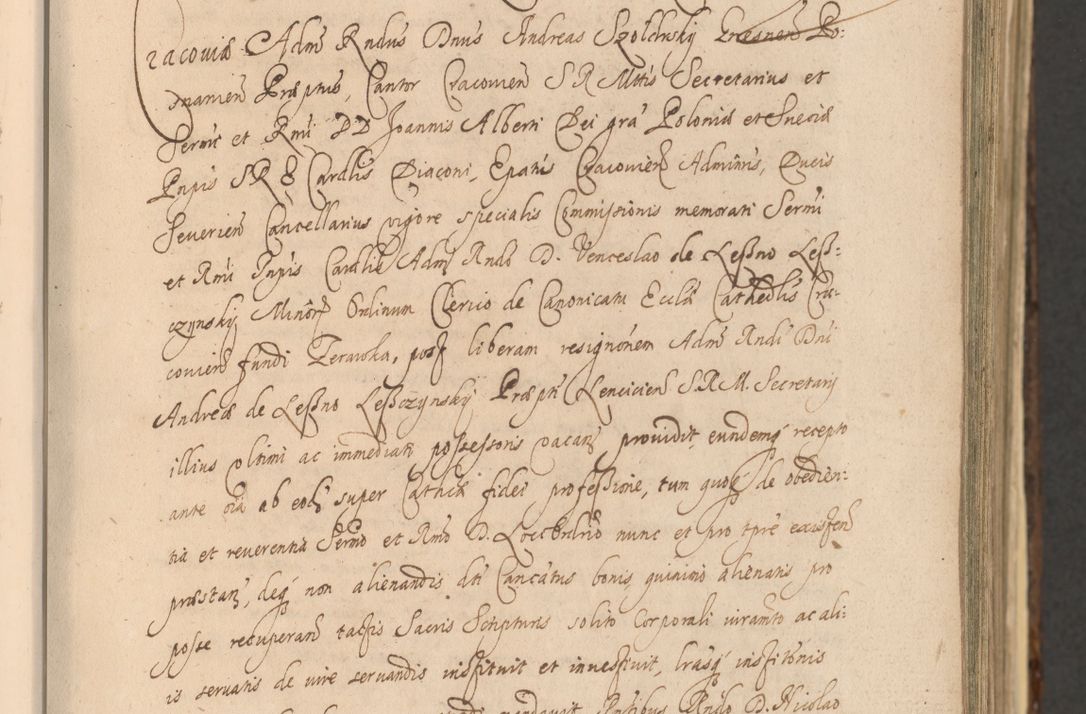 racoviæ Adm Rndus Dnus Andreas Szołdrsky Po:
znanien Præptus, Cantor Cracovien S R Mttis Secretarius et
Sermi et Rmi D D Joannis Alberti Dei gra Poloniæ et Sueciæ
Pnpis S R E Cardlis Diaconi, Epatus Cracovien Adminris, Ducis
Severien Cancellarius vigore specialis Commissionis memorati Sermi
et Rmi Pnpis Cardlis Adm Rndo D. Venceslao de Leßno Leß:
czynskÿ Minorʒ Ordinum Clerico de Canonicatu Ecclæ Cathedlis Cra:
covien fundi Zeravoka, post liberam resignónem Adm Rndi Dni
Andreæ de Leßno Leßczynskÿ Præpti Lencicien S.R.M. Secretarÿ
illius vltimi ac immediati possessoris vacanʒ providit, eundemqʒ recepto
ante oia ab eodʒ super Catholica fidei professione, tum quoqʒ de obedien:
tia et reverentia Sermo et Rmo D. Loci Ordrio nunc et pro tpre existen
præstanʒ, deqʒ non alienandis dti Canctatus bonis, quinimo alienatis pro
posse recuperand tactis Sacris Scripturis solito Corporali iuramto ac ali:
is servatis de iure servandis instituit et investivit, lrasqʒ institónis
mandavit Pntibus Rndo D. Nicolao